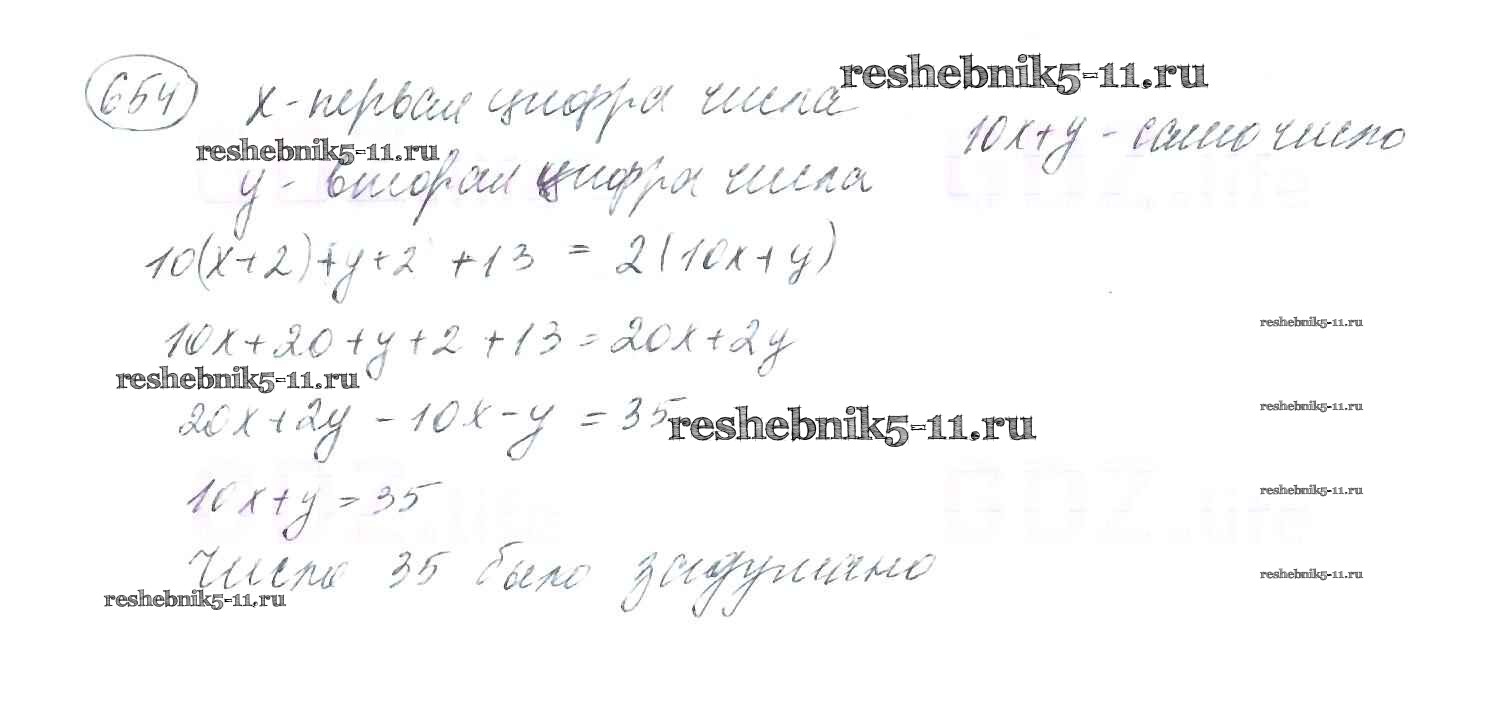 654
x - первая цифра числа
reshebnik5-11.ru
10x+y - само число
reshebnik5-11.ru
y - вторая цифра числа
10(x+2)+y+2 +13 = 2(10x+y)
reshebnik5-11.ru
10x+20+y+2+13=20x+2y
reshebnik5-11.ru
20x+2y-10x-y=35
reshebnik5-11.ru
reshebnik5-11.ru
10x+y=35
reshebnik5-11.ru
GDZ.life
GDZ.life
Число 35 было задумано
reshebnik5-11.ru
reshebnik5-11.ru